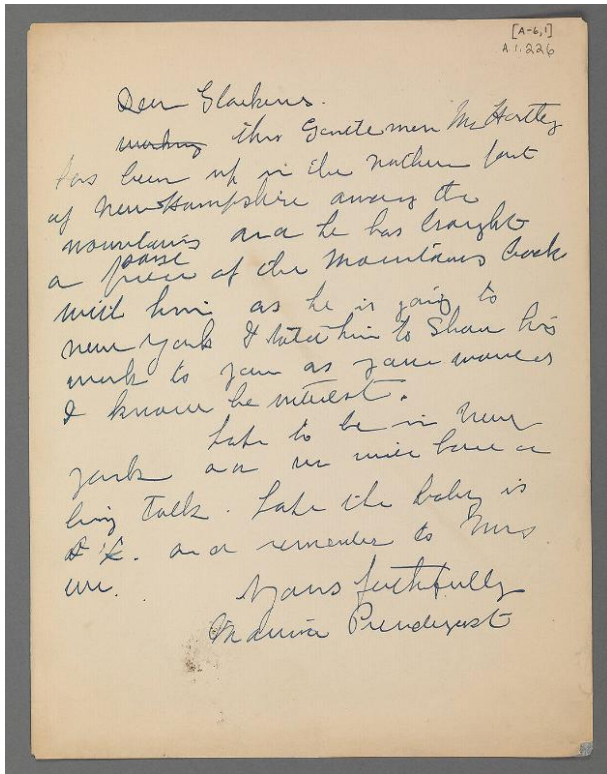 [A-6,1]
A 1.226
Dear Glackens.
this Gentlemen Mr Hartley
has been up in the northern part
of New Hampshire among the
mountains and he has brought
a piece of the mountains back
with him as he is going to
New York I told him to show his
work to you as you would
I know be interest.
hope to be in New
York and we will have a
long talk. hope the baby is
O K. and remember to Mrs.
Yours faithfully
Maurice Prendergast